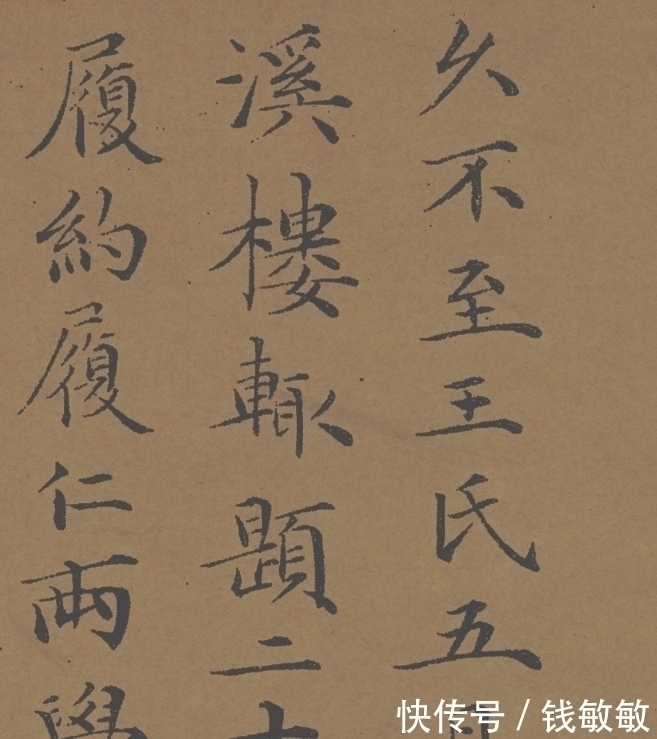 久不至王氏五
溪樓輒題二十
履約履仁兩學
快传号 / 钱敏敏